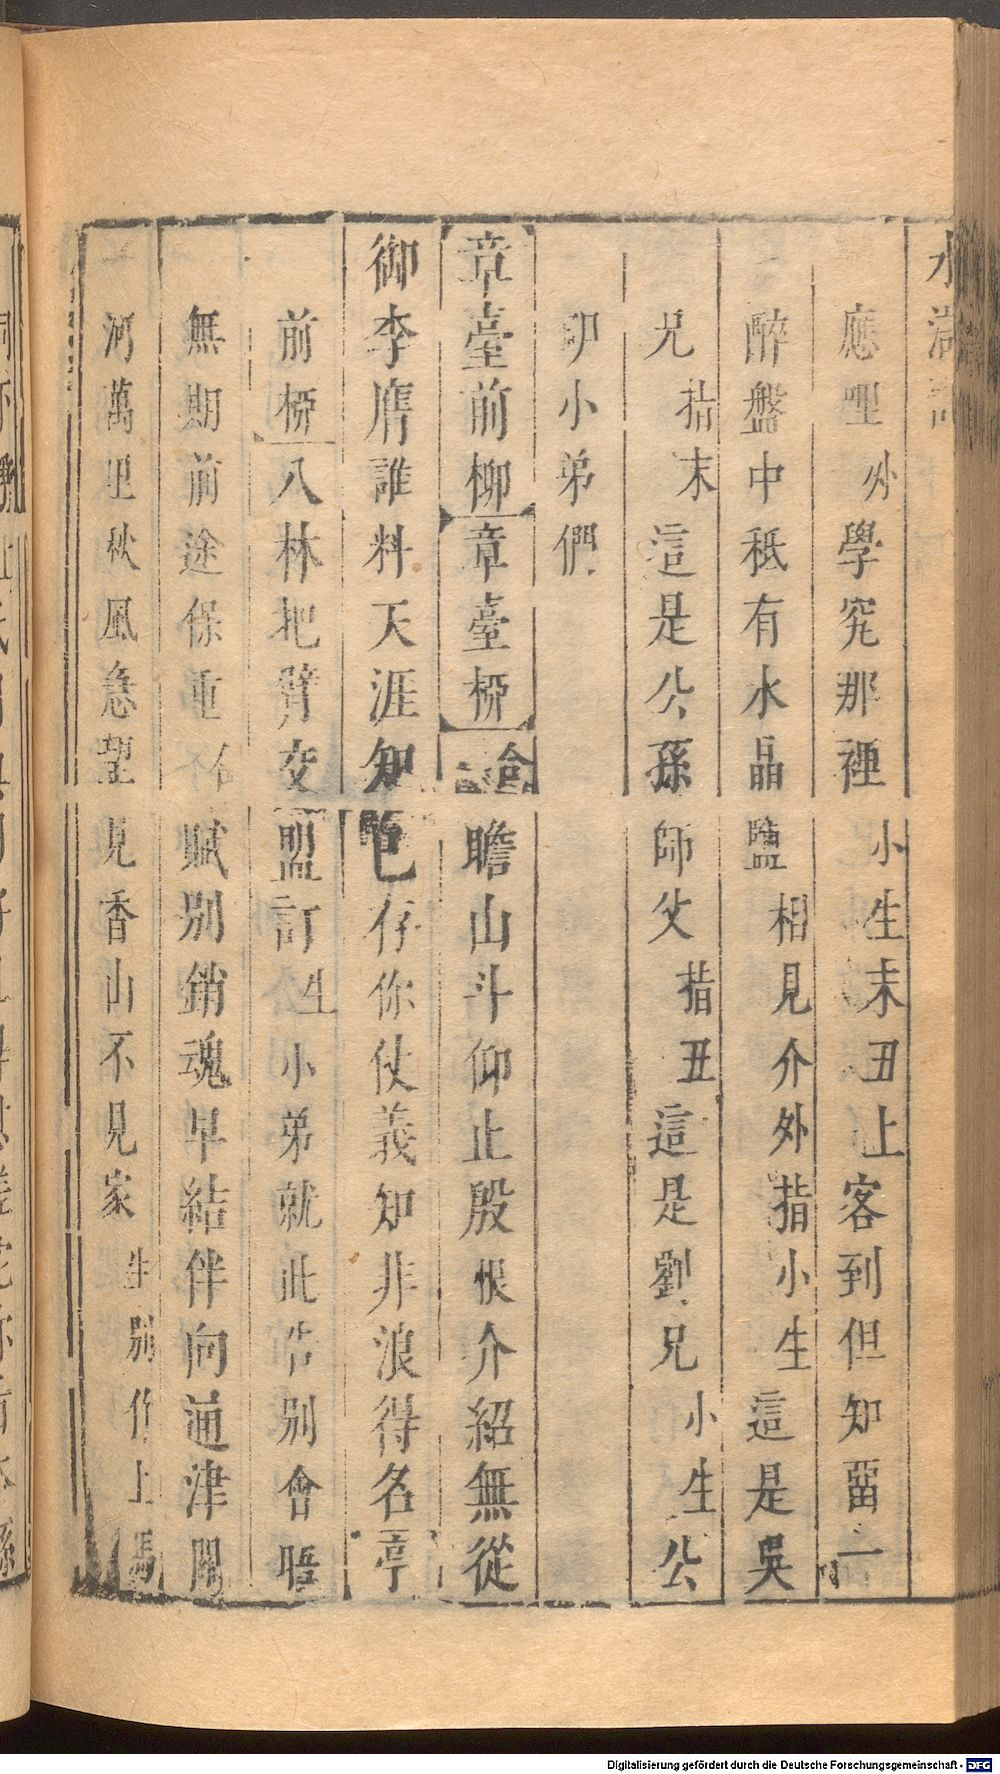 水滸記
應哩外學究那裡小生末丑上客到但知畱一
醉盤中秪有水晶鹽相見介外指小生這是吳
兄指末這是公孫師父指丑這是劉兄小生公
卽小弟們
章臺前柳章臺栁合瞻山斗仰止殷恨介紹無從
御李膺誰料天涯知已存你仗義知非浪得名亭
前栁八林把臂交盟訂生小弟就此告別會晤
無期前途保重 賦別銷魂早結伴向通津問
河萬里秋風急望見香山不見家生別作上馬
Digitalisierung gefördert durch die Deutsche Forschungsgemeinschaft - DFG